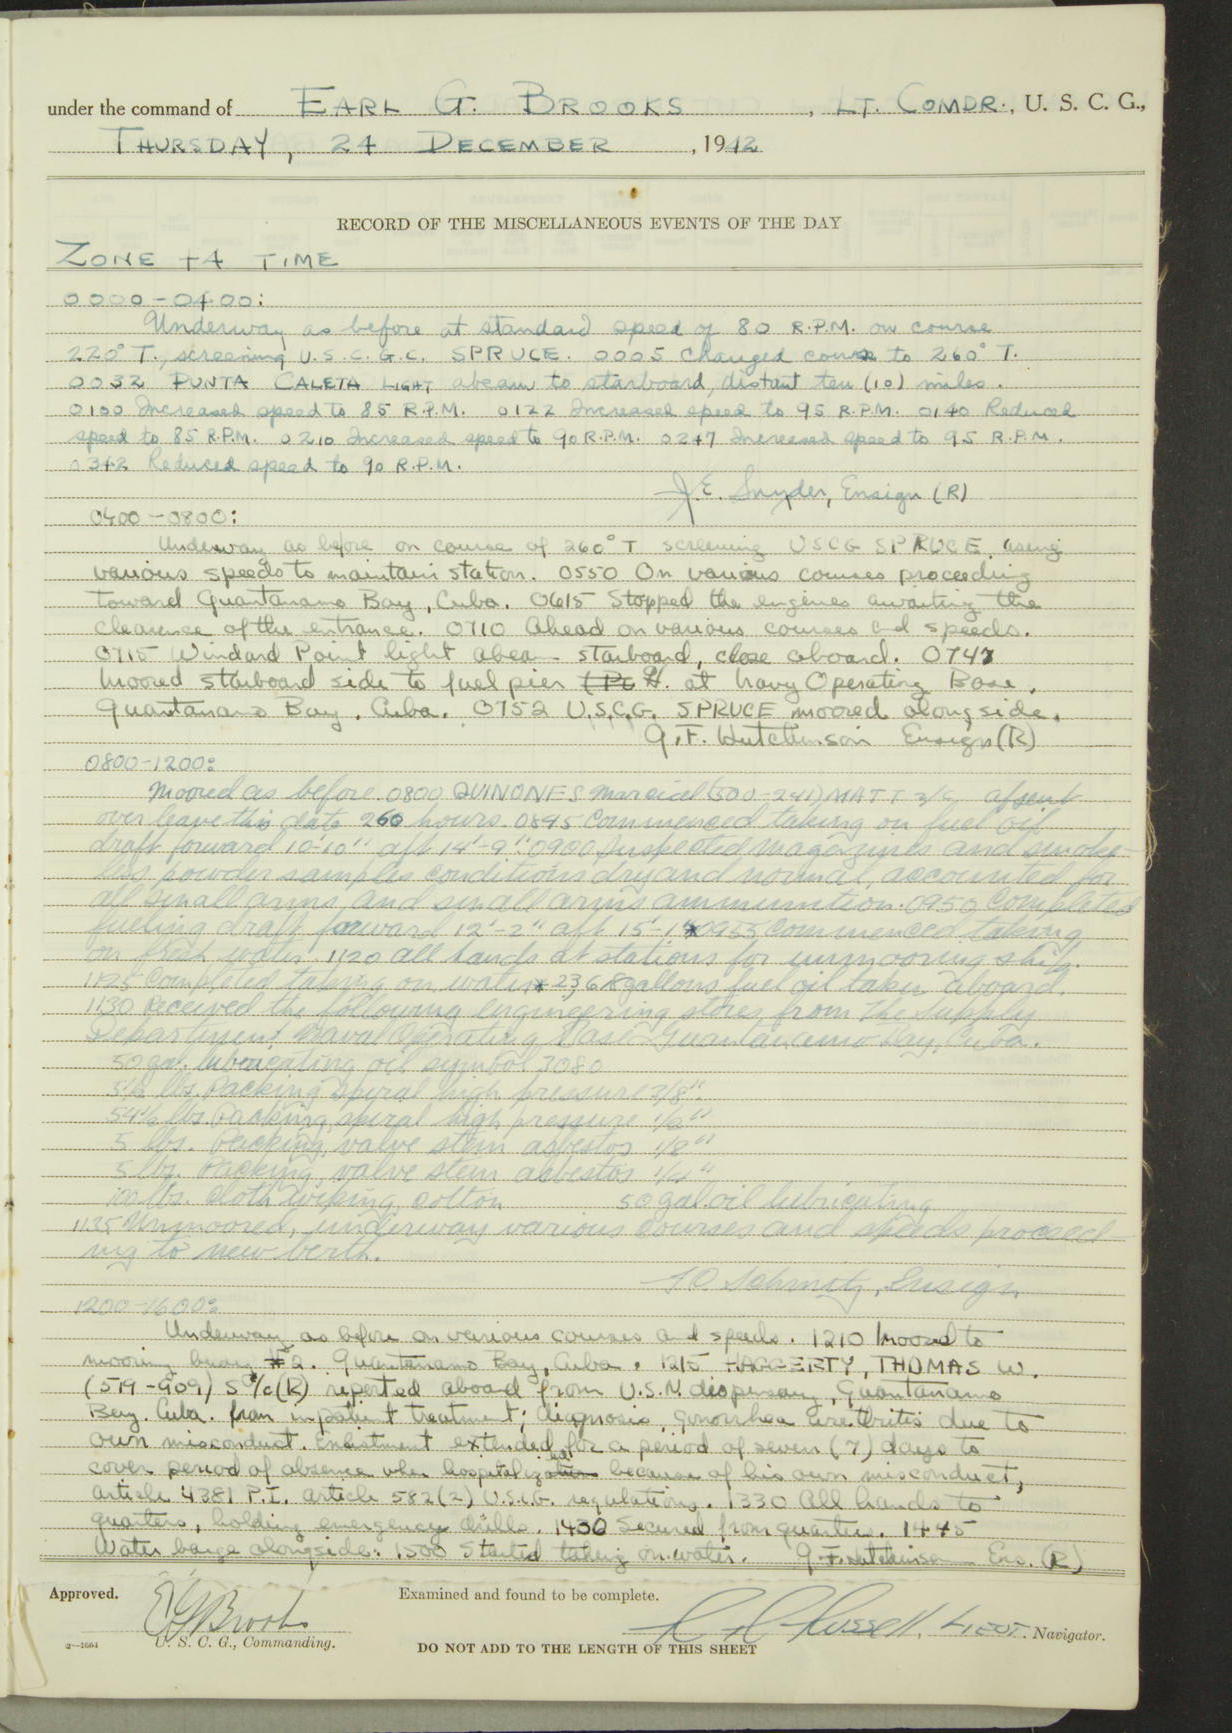 under the command of EARL G. BROOKS, LT. COMDR., U. S. C. G.,
THURSDAY, 24 DECEMBER, 1942
RECORD OF THE MISCELLANEOUS EVENTS OF THE DAY
ZONE +4 TIME
0000-0400:
Underway as before at standard speed of 80 R.P.M. on course
220° T., screening U.S.C.G.C. SPRUCE. 0005 Changed course to 260° T.
0032 PUNTA CALETA LIGHT abeam to starboard, distant ten (10) miles.
0100 Increased speed to 85 R.P.M. 0122 Increased speed to 95 R.P.M. 0140 Reduced
speed to 85 R.P.M. 0210 Increased speed to 90 R.P.M. 0247 Increased speed to 95 R.P.M.
0342 Reduced speed to 90 R.P.M.
J.E. Snyder, Ensign (R)
0400-0800:
Underway as before on course of 260° T screening USCG SPRUCE, using
various speeds to maintain station. 0550 On various courses proceeding
toward Guantanamo Bay, Cuba. 0615 Stopped the engines awaiting the
clearence of the entrance. 0710 Ahead on various courses and speeds.
0715 Windard Point light abeam starboard, close aboard. 0747
Moored starboard side to fuel pier at Navy Operating Base,
Guantanamo Bay, Cuba. 0752 U.S.C.G. SPRUCE moored alongside.
G.F. Hutchinson Ensign (R)
0800-1200:
Moored as before. 0800 QUINONES Marcial (500-241) MATT 3/c absent
over leave this date 260 hours. 0845 Commenced taking on fuel oil
draft forward 10'-10" aft 14'-9". 0900 Inspected magazines and smoke-
less powder samples conditions dry and normal, accounted for
all small arms and small arms ammunition. 0950 Completed
fueling draft forward 12'-2" aft 15'-1" 0955 Commenced taking
on fresh water. 1120 All hands at stations for unmooring ship.
1125 Completed taking on water 23,618 gallons fuel oil taken aboard.
1130 Received the following engineering stores from the Supply
Department Naval Operating Base Guantanamo Bay, Cuba.
50 gal. lubricating oil symbol 3080
5½ lbs. Packing spiral high pressure 3/8"
54½ lbs. Packing, spiral high pressure 1/2"
5 lbs. Packing, valve stem asbestos 1/8"
5 lbs. Packing, valve stem asbestos 1/4"
100 lbs. Cloth wiping, cotton 50 gal oil lubricating
1135 Unmoored, underway various courses and speeds proceed-
ing to new berth.
Schmitz, Ensign
1200-1600:
Underway as before on various courses and speeds. 1210 Moored to
mooring buoy #2. Guantanamo Bay, Cuba. 1215 HAGGERTY, THOMAS W.
(519-909) S/c(R) reported aboard from U.S.N. dispensary, Guantanamo
Bay, Cuba. from inpatient treatment; diagnosis, gonorrhea urethritis due to
own misconduct. Enlistment extended for a period of seven (7) days to
cover period of absence when hospitalized because of his own misconduct,
article 4381 P.I. article 582(2) U.S.C.G. regulations. 1330 All hands to
quarters, holding emergency drills. 1430 Secured from quarters. 1445
Water barge alongside. 1500 Started taking on water. G.F. Hutchinson Ens. (R)
Approved. Examined and found to be complete.
E G Brooks
Russell, LIEUT. Navigator.
2-1664 U. S. C. G., Commanding.
DO NOT ADD TO THE LENGTH OF THIS SHEET